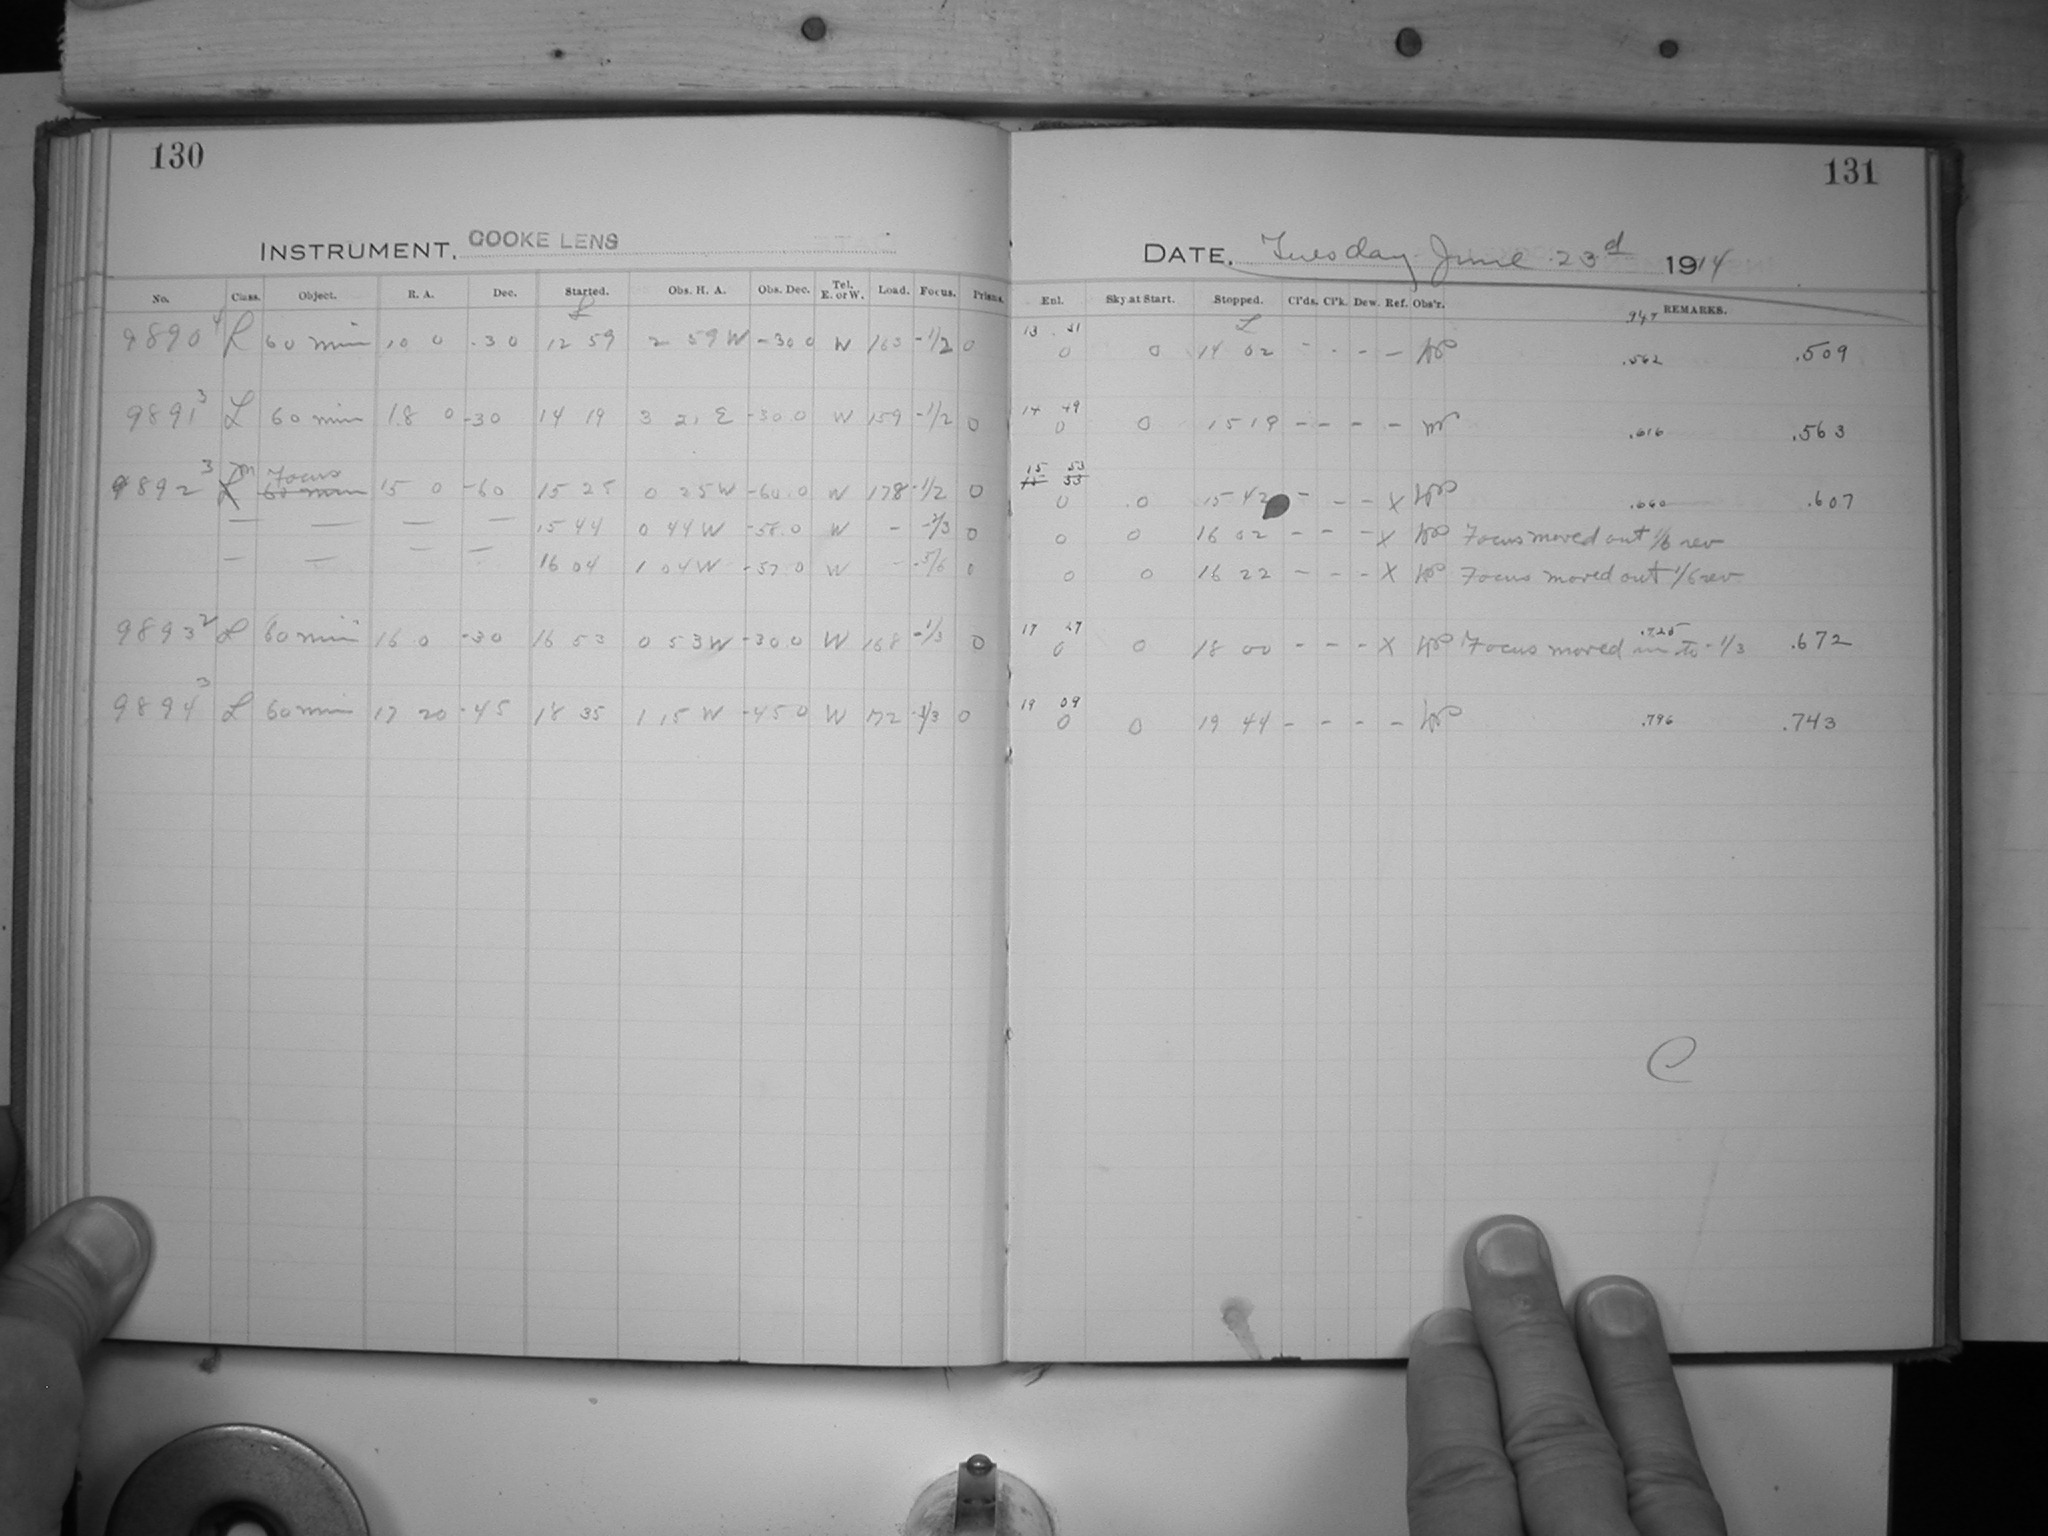 130
INSTRUMENT. COOKE LENS
No. Class. Object. R. A. Dec. Started. Obs. H. A. Obs. Dec. Tel. E. or W. Load. Focus. Prisms.
9890 4 L 60 min 10 0 -30 12 59 2 59 W -30 0 W 163 -1/2 0
9891 3 L 60 min 18 0 -30 14 19 3 21 E -30 0 W 159 -1/2 0
Focus
9892 3 15 0 -60 15 25 0 25 W -60.0 W 178 -1/2 0
— — — — 15 44 0 44 W -58.0 W - -2/3 0
— — — — 16 04 1 04 W -57 0 W - -5/6 0
9893 2 L 60 min 16 0 -30 16 53 0 53 W -30 0 W 168 -1/3 0
9894 3 L 60 min 17 20 -45 18 35 1 15 W -45 0 W 172 -1/3 0
131
DATE. Tuesday June 23d 1914
Enl. Sky at Start. Stopped. Cl'ds. Cl'k. Dew. Ref. Obs'r. REMARKS.
13 31
0 0 14 02 - - - - .562 .509
14 49
0 0 15 19 - - - - .616 .563
15 53
15 33
0 0 15 42 - - - X .660 .607
0 0 16 02 - - - X Focus moved out 1/6 rev
0 0 16 22 - - - X Focus moved out 1/6 rev.
17 27 .725
0 0 18 00 - - - X Focus moved in to -1/3 .672
19 09
0 0 19 44 - - - - .796 .743
C